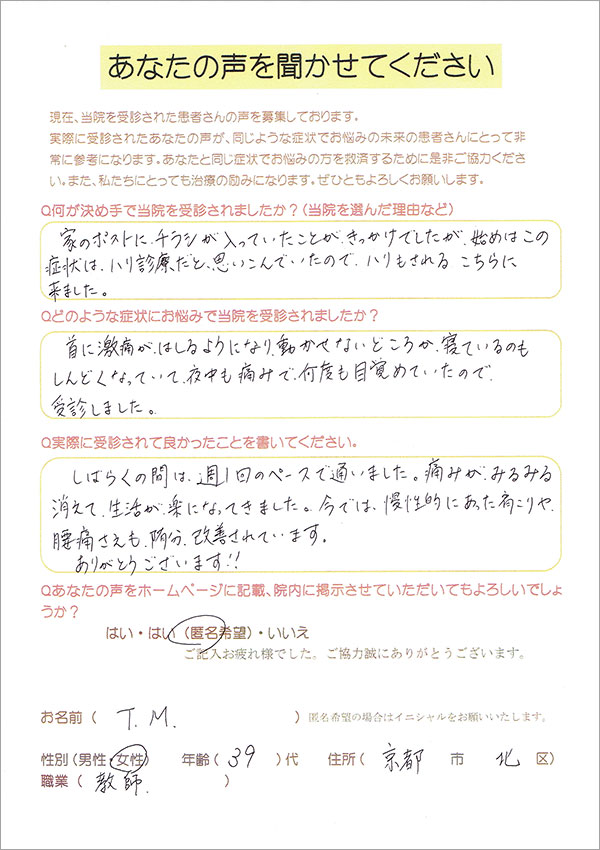 あなたの声を聞かせてください
現在、当院を受診された患者さんの声を募集しております。
実際に受診されたあなたの声が、同じような症状でお悩みの未来の患者さんにとって非
常に参考になります。あなたと同じ症状でお悩みの方を救済するために是非ご協力くださ
い。また、私たちにとっても治療の励みになります。ぜひともよろしくお願いします。
Q何が決め手で当院を受診されましたか？(当院を選んだ理由など)
家のポストに、チラシが入っていたことが、きっかけでしたが、始めはこの
症状は、ハリ診療だと、思いこんでいたので、ハリもされる こちらに
来ました。
Qどのような症状にお悩みで当院を受診されましたか？
首に激痛が、はしるようになり、動かせないどころか、寝ているのも
しんどくなっていて、夜中も痛みで、何度も目覚めていたので、
受診しました。
Q実際に受診されて良かったことを書いてください。
しばらくの間は、週1回のペースで通いました。痛みが、みるみる
消えて、生活が、楽になってきました。今では、慢性的にあった肩こりや、
腰痛さえも、随分、改善されています。
ありがとうございます!!
Qあなたの声をホームページに記載、院内に掲示させていただいてもよろしいでしょ
うか？
はい・はい（匿名希望）・いいえ
ご記入お疲れ様でした。ご協力誠にありがとうございます。
お名前（ T.M. ）匿名希望の場合はイニシャルをお願いいたします。
性別(男性・女性) 年齢( 39 )代 住所( 京都 市 北 区)
職業（ 教師. ）